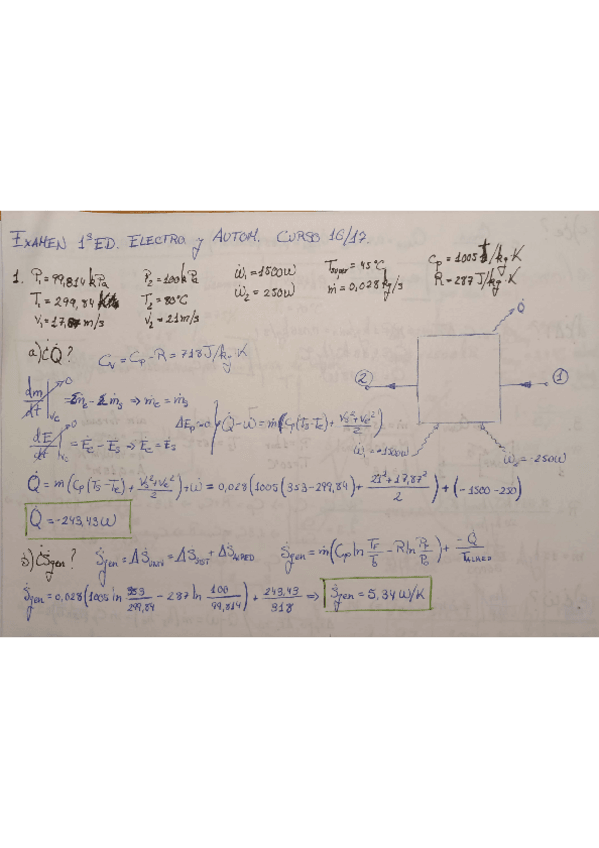 EXAMEN 1ª ED. ELECTRO y AUTOM. CURSO 16/17.
1. P₁ = 99,814 kPa P₂ = 100 kPa Ẇ₁ = 1500W = 45°C Cp = 1005 J/kg·K
T₁ = 299,84 T₂ = 80°C Ẇ₂ = 250W ṁ = 0,028 kg/s R = 287 J/kg·K
V₁ = 17,87 m/s V₂ = 21 m/s
Q̇
a) ¿Q̇? Cv = Cp - R = 718 J/kg·K
2 1
dm/dt]vc = ṁe - ṁs ⇒ ṁe = ṁs
0
ΔEp = 0 Q̇ - Ẇ = ṁ(Cp(Ts - Te) + (Vs² + Ve²)/2)
dE/dt]vc = Ėe - Ės ⇒ Ėe = Ės
0
Ẇ₁ = -1500W Ẇ₂ = -250W
Q̇ = ṁ(Cp(Ts - Te) + (Vs² + Ve²)/2) + Ẇ = 0,028(1005(353 - 299,84) + (21² + 17,87²)/2) + (-1500 - 250)
Q̇ = -243,43 W
b) ¿Ṡgen? Ṡgen = ΔṠuniv = ΔṠsist + ΔṠalred Ṡgen = ṁ(Cp ln - R ln ) + -Q̇/Talred
Ṡgen = 0,028(1005 ln 353/299,84 - 287 ln 100/99,814) + 243,43/318 ⇒ Ṡgen = 5,34 W/K